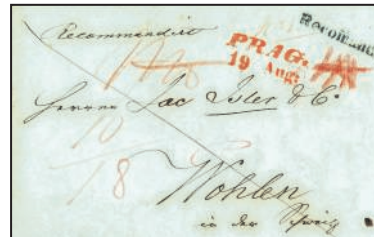 Recommandirt
Recomandi
PRAG.
19 Aug:
Herren Jac Isler & C°
10
18
Wohlen
in der Schweiz